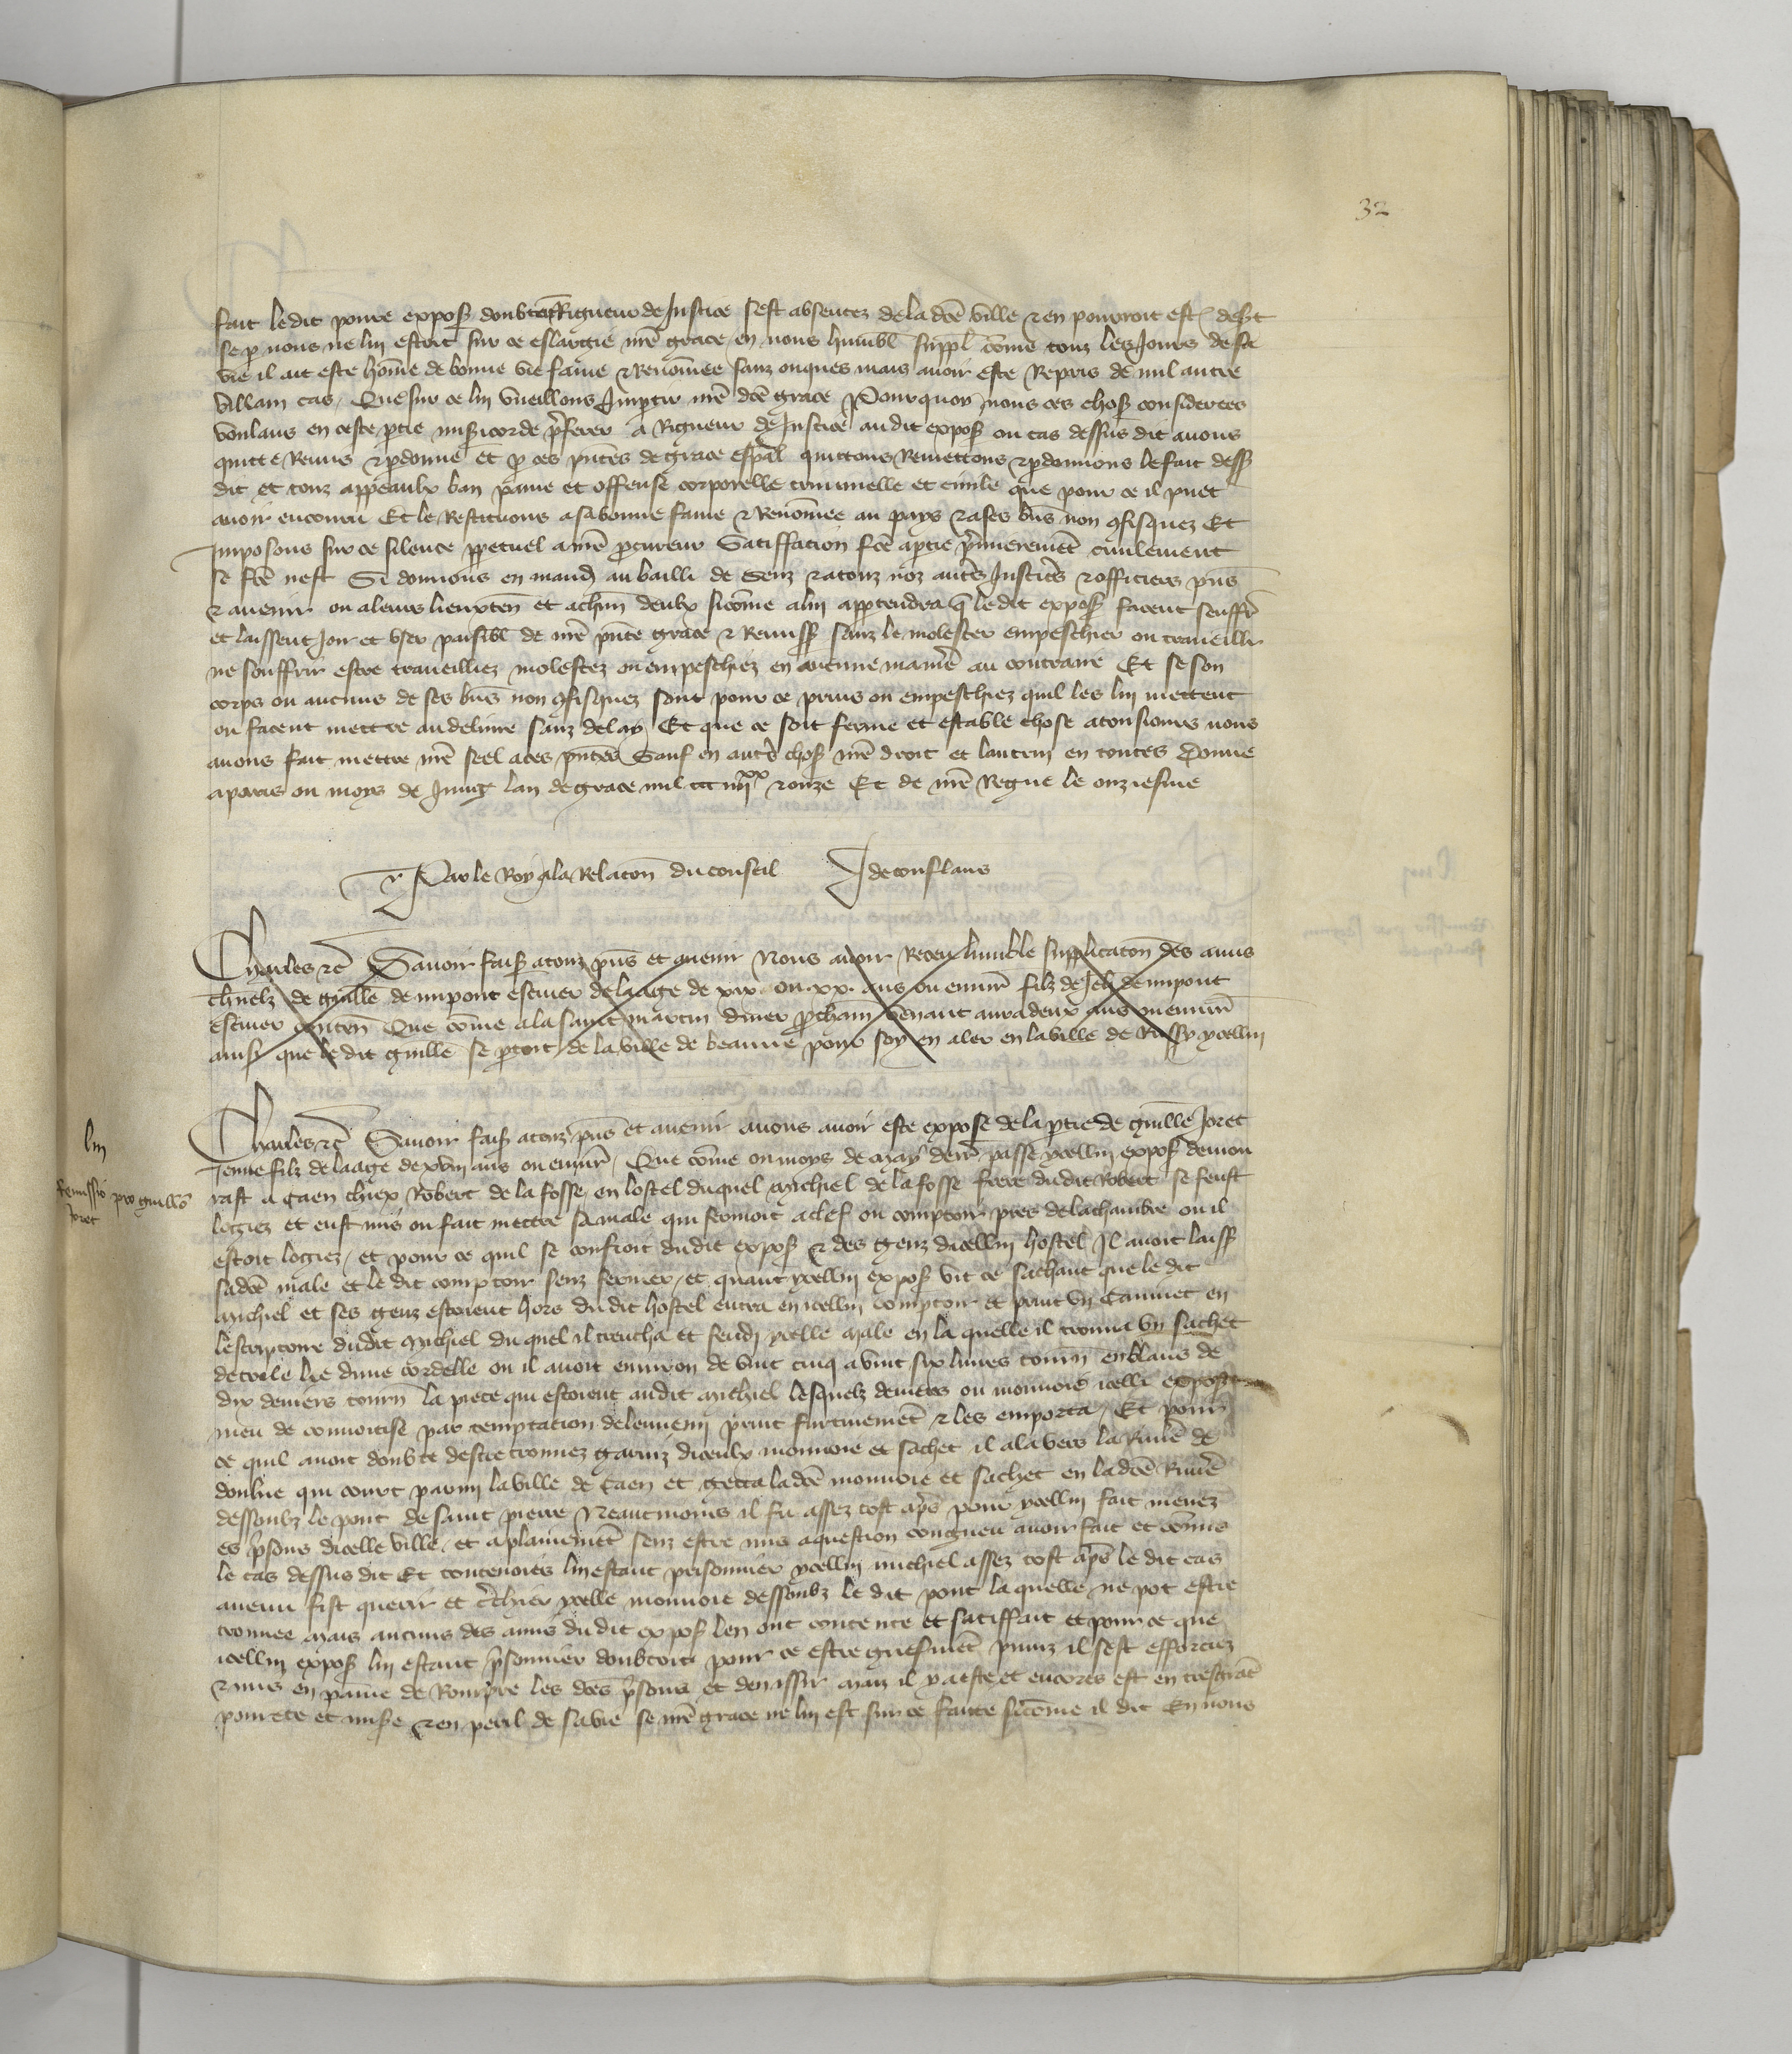 32
fait le dit povre expos doubtāt Rigueur de Justice sest absentez de la dcē ville & en pourroit est desert
se p nous ne lui estoit sur ce eslargie nrē grace en nous humbl suppl cōme touz les Jours de sa
vie il ait este hōme de bonne vie fame & Renōmee sanz onques mais avoir este Repris de nul autre
villain cas / Que sur ce lui vueillons Impartir nrē dcē grace Pourquoy nous ces chos considerees
voulans en ceste ptie misicorde pferer a Rigueur de Justice au dit expos ou cas dessus dit avons
quitte Remis & pdonne et p ces pntēs de grace espāl quittons Remettons & pdonnons le fait dess
dit et touz appeaulx ban paine et offense corporelle criminelle et civile que pour ce il puet
avoir encouru Et le Restituons a sa bonne fame & Renōmee au pays & a ses bns non 9fisquez Et
Imposons sur ce silence ppetuel a nrē pcureur Satiffacion fcē a ptie pmieremēt civilement
se fcē nest Si donnons en mand au bailli de Senz & a touz noz autrēs Justicērs & officiers pns
& avenir ou a leurs lieuxten et a chūn deulx sicōme a lui apptendra q le dit expos facent seuffr
et laissent Joir et user paisibl de nrē pnte grace & Remiss sanz le molester empeschier ou traveillr
ne souffrir estre traveilliez molestez ou empeschiez en aucune manie au contraire Et se son
corps ou aucuns de ses bns non 9fisquez sont pour ce prins ou empeschiez quil les lui mettent
ou facent mettre au delivre sanz delay Et que ce soit ferme et estable chose a tousiours nous
avons fait mettre nrē seel a ces pntēs Sauf en autrēs chos nrē droit et lautrui en toutes Donne
a paris ou moys de Juing lan de grace mil ccc iiii xx & onze Et de nrē Regne le onziesme
Par le Roy a la Relacōn du conseil J de conflans
Charles &c Savoir fais a touz pns et avenir Nous avoir Receu humble supplicacōn des amis
chnelz de guille de nipont escuier de laage de xix ou xx ans ou envirn filz de Jeh de nipont
escuier conten Que cōme a la saint martin diver pchain venant aura deux ans ou envirn
ainsy que le dit guille se ptoit de la ville de beaune pour soy en aler en la ville de Russy ycellui
liii
Remissio pro guillo Joret
Charles &c Savoir fais a touz pns et avenir a nous avoir este expose de la ptie de guille Joret
Jeune filz de laage de xviii ans ou envirn / Que cōme ou moys de may derr passe ycellui expos demou
rast a Caen chiex Robert de la fosse en lostel duquel michiel de la fosse frere du dit Robert se feust
logiez et eust mis ou fait mettre sa male qui fermoit a clef ou comptoir pres de la chambre ou il
estoit logiez / et pour ce quil se confioit du dit expos & des genz dicellui hostel Il avoit laiss
sa dcē male et le dit comptoir senz fermer / et quant ycellui expos vit ce sachant que le dit
michiel et ses genz estoient hors du dit hostel entra en icellui comptoir et print un canivet en
lescriptoire dudit michiel du quel il trencha et fendi ycelle male en la quelle il trouva un sachet
de toile lie dune cordelle ou il avoit environ de vint cinq a vint six livres tourn en blans de
dix deniers tourn la piece qui estoient audit michiel lesquelz deniers ou monnoie icelli expos
meu de convoitise par temptacion de lennemi print furtivemēt & les emporta / Et pour
ce quil avoit doubte destre trouvez garniz diceulx monnoie et sachet il ala vers la Rivie de
doulne qui court parmi la ville de Caen et getta la dcē monnoie et sachet en la dcē Rivie
dessoubz le pont de saint pierre Neantmoins il fu assez tost aps pour ycellui fait menez
es psons dicelle ville / et a plainemēt senz estre mis a question congneu avoir fait et cōmis
le cas dessus dit Et toutevoies lui estant prisonnier ycellui michiel assez tost aps le dit cas
avenu fist querir et cerchier ycelle monnoie dessoubz le dit pont la quelle ne pot estre
trouvee mais aucuns des amis du dit expos len ont contente et satiffait et pour ce que
icellui expos lui estant psonnier doubtoit pour ce estre griefmēt puniz il sest efforciez
& mis en paine de Rompre les dces psons et den issir mais il y a este et encores est en tresgrāt
povrete et mise & en peril de sa vie se nrē grace ne lui est sur ce faicte sicōme il dit En nous